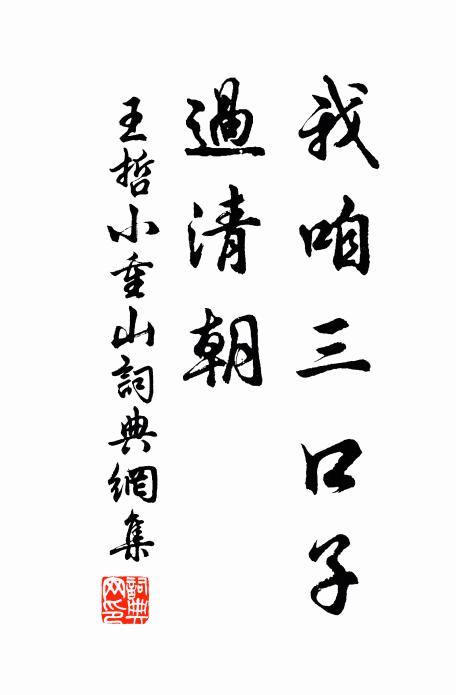 我咱三口子
過清朝
王哲小重山詞典網集
詞典網印